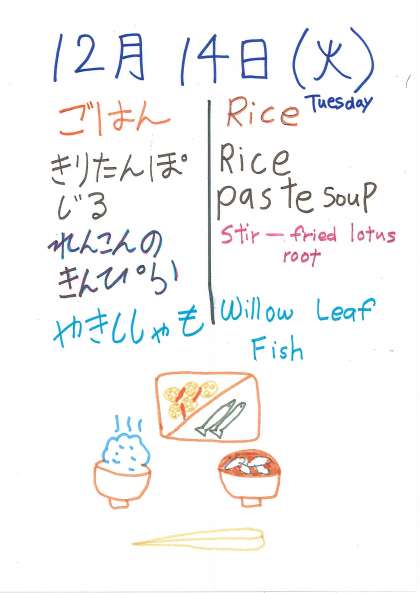 12月 14日(火)
Tuesday
ごはん
きりたんぽ
じる
れんこんの
きんぴら
やきししゃも
Rice
Rice
paste soup
Stir-fried lotus
root
Willow Leaf
Fish